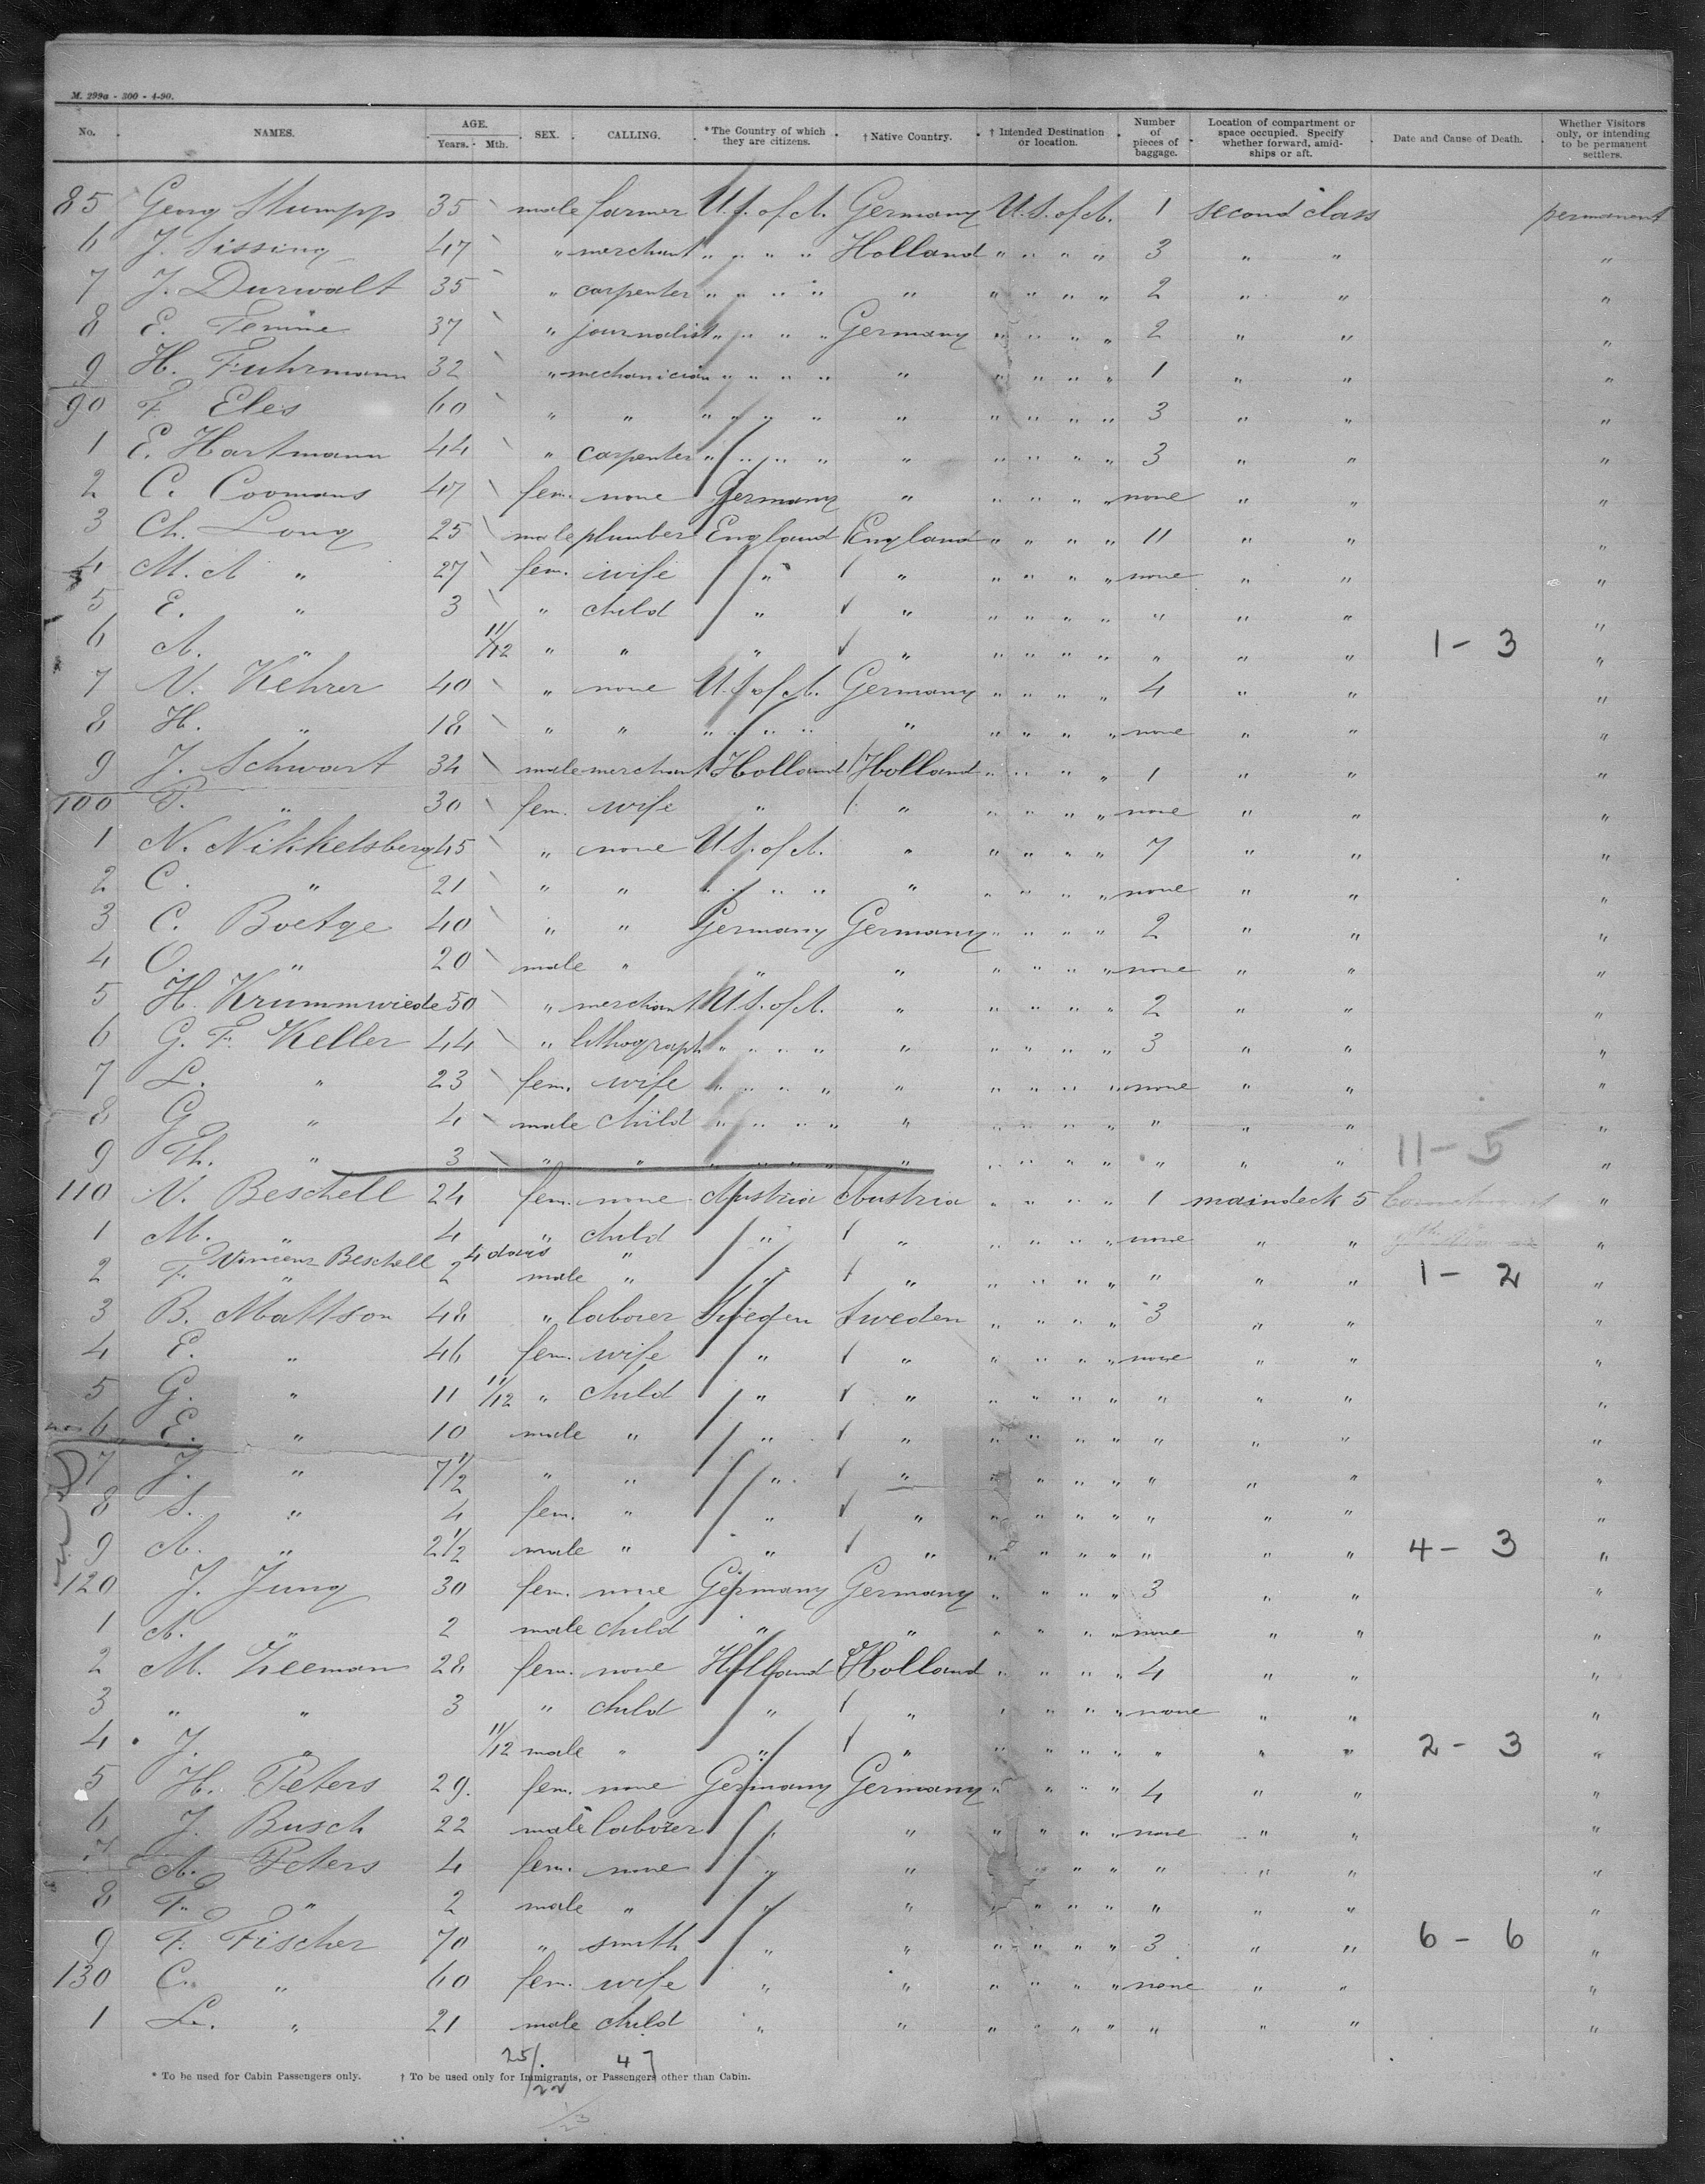 M. 299a - 300 - 4-90.
No. NAMES. AGE. Years. Mth. SEX. CALLING. *The Country of which they are citizens. † Native Country. † Intended Destination or location. Number of pieces of baggage. Location of compartment or space occupied. Specify whether forward, amidships or aft. Date and Cause of Death. Whether Visitors only, or intending to be permanent settlers.
85 Georg Stumpp 35 male farmer U.S. of A. Germany U.S. of A. 1 second class permanent
6 J. Sissing 47 " merchant " " " " Holland " " " " 3 " " "
7 J. Durwalt 35 " carpenter " " " " " " " " " 2 " " "
8 E. 37 " journalist " " " " Germany " " " " 2 " " "
9 H. Fuhrmann 32 " mechanician " " " " " " " " " 1 " " "
90 F. Eles 60 " " " " " " " " " " " 3 " " "
1 E. Hartmann 44 " carpenter " " " " " " " " " 3 " " "
2 C. Coomans 47 fem. none Germany " " " " " none " " "
3 Ch. Long 25 male plumber England England " " " " 11 " " "
4 M. A " 27 fem. wife " " " " " " none " " "
5 E. " 3 " child " " " " " " " " " "
6 A. " 11/12 " " " " " " " " " " " 1 - 3 "
7 N. Kehrer 40 " none U.S. of A. Germany " " " " 4 " " "
8 H. " 18 " " " " " " " " " " " none " " "
9 J. Schwart 34 male merchant Holland Holland " " " " 1 " " "
100 P. " 30 fem. wife " " " " " " none " " "
1 N. Nikkelsberg 45 " none U.S. of A. " " " " " 7 " " "
2 C. " 21 " " " " " " " " " " " none " " "
3 C. Boetge 40 " " Germany Germany " " " " 2 " " "
4 O. " 20 male " " " " " " " none " " "
5 H. Krummwiede 50 " merchant U.S. of A. " " " " " 2 " " "
6 G. F. Keller 44 " lithograph " " " " " " " " " 3 " " "
7 L. " 23 fem. wife " " " " " " " " " none " " "
8 G " 4 male child " " " " " " " " " " " " "
9 Th. " 3 " " " " " " " " " " " " " " 11 - 5 "
110 N. Beschell 24 fem. none Austria Austria " " " " 1 maindeck 5 "
1 M. " 4 " child " " " " " " none " " "
Vincenz Beschell 4 days "
2 F. " 2 male " " " " " " " " " " 1 - 2 "
3 B. Mattson 48 " laborer Sweden Sweden " " " " 3 " " "
4 E. " 46 fem. wife " " " " " " none " " "
5 G. " 11 11/12 " child " " " " " " " " " "
6 E. " 10 male " " " " " " " " " " "
7 J. " 7 1/2 " " " " " " " " " " " "
8 S. " 4 fem. " " " " " " " " " " "
9 A. " 2 1/2 male " " " " " " " " " " 4 - 3 "
120 J. Jung 30 fem. none Germany Germany " " " " 3 " " "
1 A. " 2 male child " " " " " " none " " "
2 M. Zeeman 28 fem. none Holland Holland " " " " 4 " " "
3 " " 3 " child " " " " " " none " " "
4 J. " 11/12 male " " " " " " " " " " 2 - 3 "
5 H. Peters 29. fem. none Germany Germany " " " " 4 " " "
6 J. Busch 22 male laborer " " " " " " none " " "
7 A. Peters 4 fem. none " " " " " " " " " "
8 F. " 2 male " " " " " " " " " " "
9 F. Fischer 70 " smith " " " " " " 3 " " 6 - 6 "
130 C. " 60 fem. wife " " " " " " none " " "
1 L. " 21 male child " " " " " " " " " "
25/. 4
* To be used for Cabin Passengers only. † To be used only for Immigrants, or Passengers other than Cabin.
22
1/23